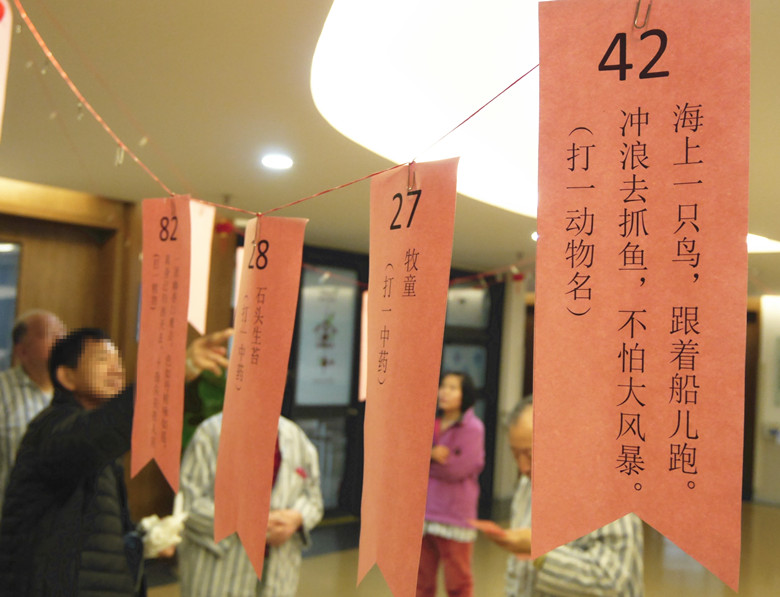 82
28
石头生苔
（打一中药）
27
牧童
（打一中药）
42
海上一只鸟，跟着船儿跑。
冲浪去抓鱼，不怕大风暴。
（打一动物名）